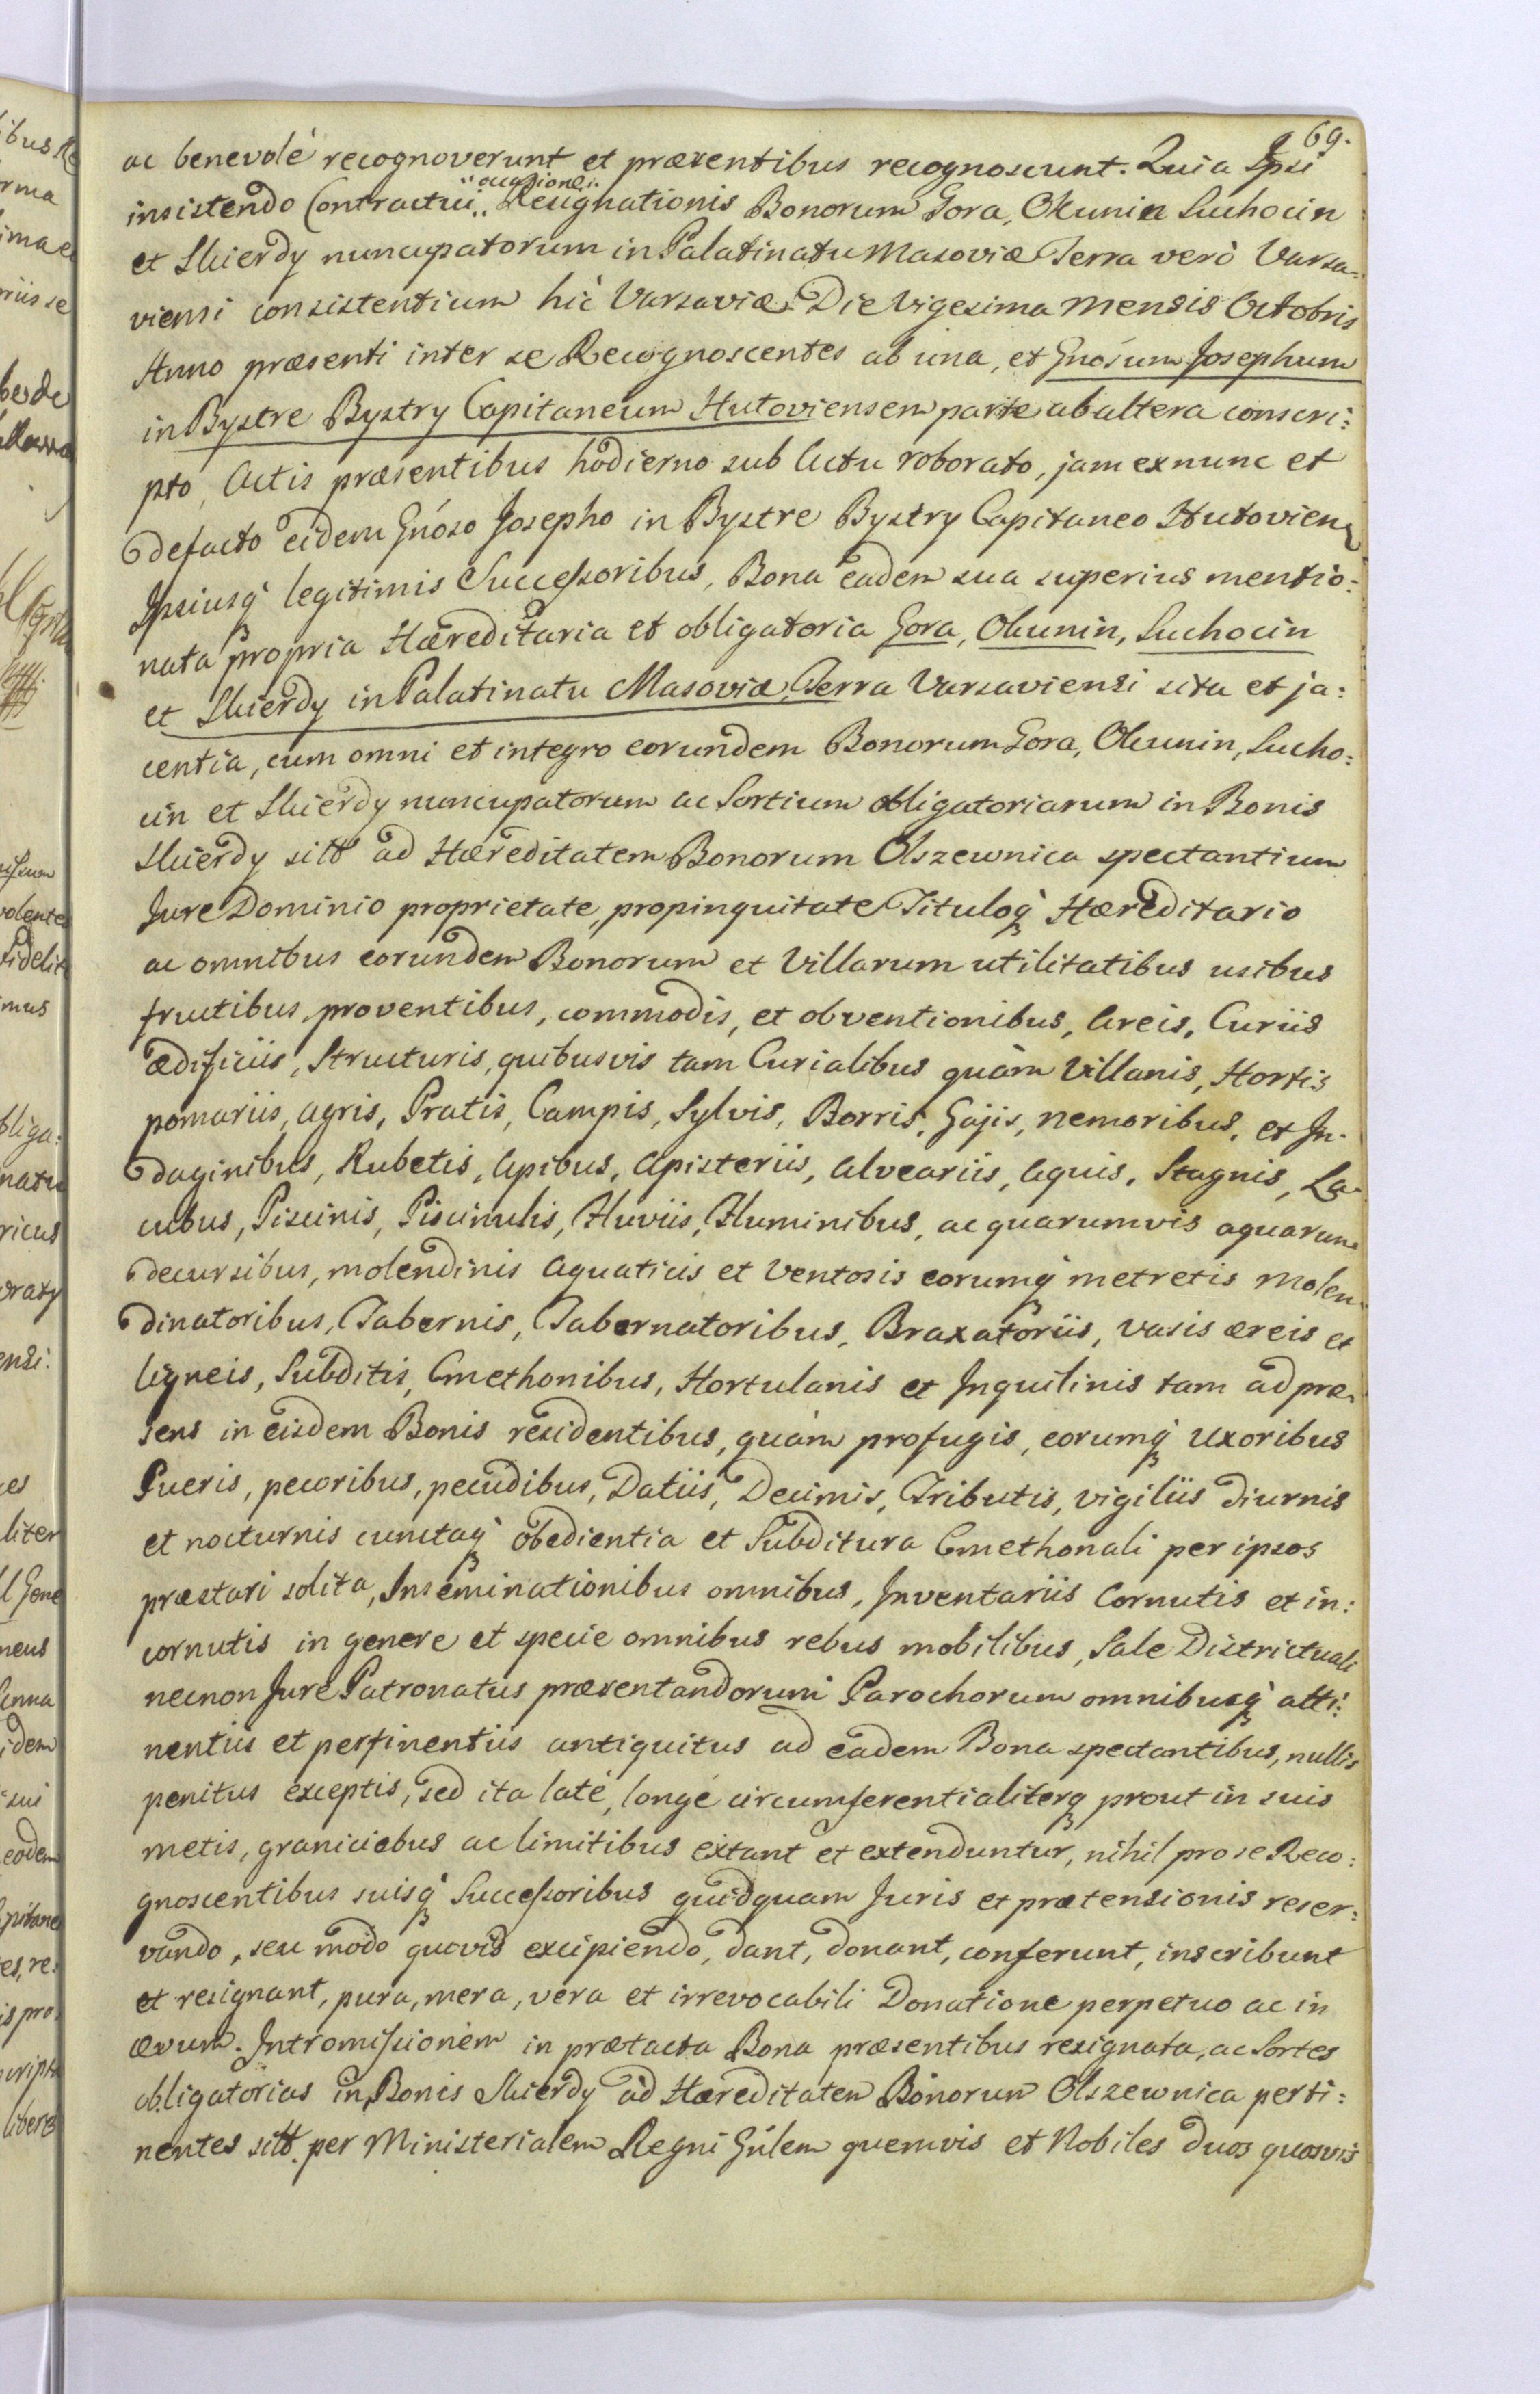 69.
ac benevolé recognoverunt et præsentibus recognoscunt. Quia Ipsi
insistendo Contractui occasione Resignationis Bonorum Gora, Okunin Suchocin
et Skierdy nuncupatorum in Palatinatu Masoviæ Terra verò Varsa=
viensi consistentium hìc Varsaviæ Die Vigesima Mensis Octobris
Anno præsenti inter se Recognoscentes ab una, et Gnósum Josephum
in Bystre Bystry Capitaneum Hutoviensem parte ab altera conscri:
pto, Actis præsentibus hodierno sub Actu roborato, jam exnunc et
defacto eidem Gnóso Josepho in Bystre Bystry Capitaneo Hutovien
Ipsiusq' legitimis Successoribus, Bona eadem sua superius mentio:
nata propria Hæreditaria et obligatoria Gora, Okunin, Suchocin
et Skierdy in Palatinatu Masoviæ, Terra Varsaviensi sita et ja:
centia, cum omni et integro eorundem Bonorum Gora, Okunin, Sucho:
cin et Skierdy nuncupatorum ac Sortium obligatoriarum in Bonis
Skierdy sitt ad Hæreditatem Bonorum Olszewnica spectantium
Jure Dominio proprietate, propinquitate Tituloq' Hæreditario
ac omnibus eorundem Bonorum et Villarum utilitatibus usibus
fructibus, proventibus, commodis, et obventionibus, Areis, Curiis
ædificiis, Structuris, quibusvis tam Curialibus quàm Villanis, Hortis
pomariis, agris, Pratis, Campis, Sylvis, Borris, Gajis, nemoribus, et In-
daginibus, Rubetis, Apibus, Apisteriis, Alveariis, Aquis, Stagnis, La-
cubus, Piscinis, Piscinulis, Fluviis, Fluminibus, ac quarumvis aquarum
decursibus, molendinis Aquaticis et Ventosis eorumq' metretis Molen-
dinatoribus, Tabernis, Tabernatoribus, Braxatoriis, vasis æreis et
ligneis, Subditis, Cmethonibus, Hortulanis et Inquilinis tam ad præ-
sens in eisdem Bonis residentibus, quàm profugis, eorumq' Uxoribus
Pueris, pecoribus, pecudibus, Datiis, Decimis, Tributis, vigiliis diurnis
et nocturnis cunctaq' obedientia et Subditura Cmethonali per ipsos
præstari solita, Inseminationibus omnibus, Inventariis Cornutis et in:
cornutis in genere et specie omnibus rebus mobilibus, Sale Districtuali
necnon Jure Patronatus præsentandorum Parochorum omnibusq' atti:
nentiis et pertinentiis antiquitus ad eadem Bona spectantibus, nullis
penitus exceptis, sed ita laté, longé circumferentialiterq prout in suis
metis, graniciebus ac limitibus extant et extenduntur, nihil pro se Reco:
gnoscentibus suisq' Successoribus quidquam Juris et prætensionis reser:
vando, seu modo quovis excipiendo, dant, donant, conferunt, inscribunt
et resignant, pura, mera, vera et irrevocabili Donatione perpetuo ac in
ævum. Intromissionem in prætacta Bona præsentibus resignata, ac Sortes
obligatorias in Bonis Skierdy ad Hæreditatem Bonorum Olszewnica perti:
nentes sitt. per Ministerialem Regni Gńlem quemvis et Nobiles duos quosvis